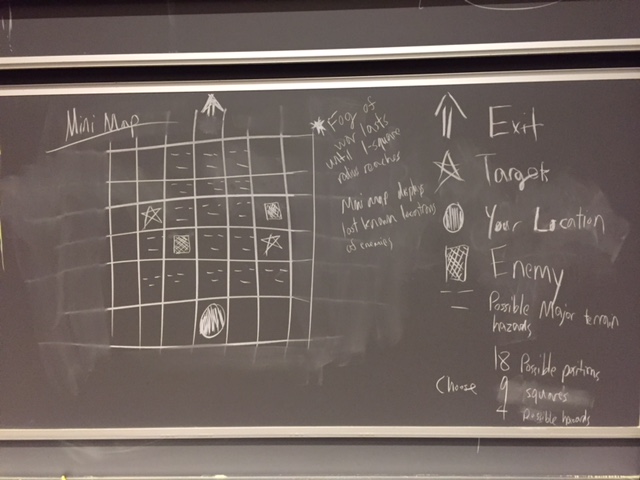 Mini Map
* Fog of
war lasts
until 1-square
radius reaches
Mini map displays
last known locations
of enemies
Exit
Target
Your Location
Enemy
Possible Major terrain
hazards
18 Possible positions
Choose 9 squares
4 Possible hazards